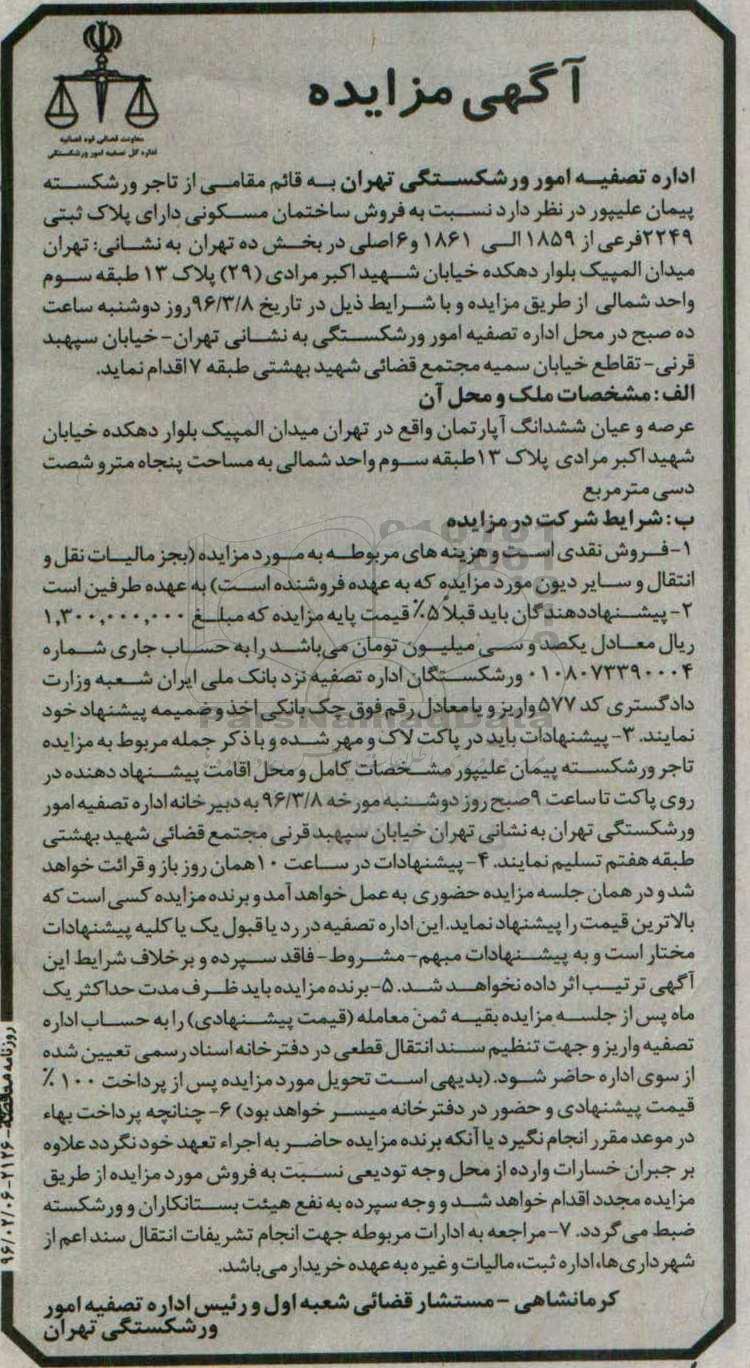 آگهی مزایده
معاونت قضائی قوه قضائیه
اداره کل تصفیه امور ورشکستگی
اداره تصفیــه امور ورشکســتگی تهران بــه قائم مقامــی از تاجر ورشکســته
پیمان علیپور در نظر دارد نســبت به فروش ساختمان مســکونی دارای پلاک ثبتی
۲۲۴۹فرعی از ۱۸۵۹ الــی ۱۸۶۱ و۶اصلی در بخــش ده تهران به نشــانی: تهران
میدان المپیک بلوار دهکده خیابان شــهید اکبر مرادی (۲۹) پلاک ۱۳ طبقه ســوم
واحد شمالی از طریق مزایده و با شــرایط ذیل در تاریخ ۹۶/۳/۸روز دوشنبه ساعت
ده صبح در محل اداره تصفیه امور ورشکســتگی به نشــانی تهران- خیابان سپهبد
قرنی- تقاطع خیابان سمیه مجتمع قضائی شهید بهشتی طبقه ۷اقدام نماید.
الف: مشخصات ملک و محل آن
عرصه و عیان ششدانگ آپارتمان واقع در تهران میدان المپیک بلوار دهکده خیابان
شهید اکبر مرادی پلاک ۱۳طبقه ســوم واحد شمالی به مساحت پنجاه مترو شصت
دسی مترمربع
ب: شرایط شرکت در مزایده
۱-فــروش نقدی اســت و هزینه های مربوطــه به مــورد مزایده (بجز مالیــات نقل و
انتقال و ســایر دیون مورد مزایده که به عهده فروشنده اســت) به عهده طرفین است
۲- پیشــنهاددهندگان باید قبلاً ۵٪ قیمت پایه مزایده که مبلــغ ۱,۳۰۰,۰۰۰,۰۰۰
ریال معــادل یکصد و ســی میلیــون تومان می‌باشــد را به حســاب جاری شــماره
۰۱۰۸۰۷۳۳۹۰۰۰۴ ورشکســتگان اداره تصفیه نزد بانک ملی ایران شــعبه وزارت
دادگستری کد ۵۷۷ واریز و یا معادل رقم فوق چک بانکی اخذ و ضمیمه پیشنهاد خود
نمایند. ۳- پیشنهادات باید در پاکت لاک و مهر شــده و با ذکر جمله مربوط به مزایده
تاجر ورشکســته پیمان علیپور مشــخصات کامل و محل اقامت پیشــنهاد دهنده در
روی پاکت تا ساعت ۹صبح روز دوشــنبه مورخه ۹۶/۳/۸ به دبیرخانه اداره تصفیه امور
ورشکستگی تهران به نشانی تهران خیابان سپهبد قرنی مجتمع قضائی شهید بهشتی
طبقه هفتم تسلیم نمایند. ۴- پیشنهادات در ســاعت ۱۰همان روز باز و قرائت خواهد
شد و در همان جلسه مزایده حضوری به عمل خواهد آمد و برنده مزایده کسی است که
بالاترین قیمت را پیشنهاد نماید. این اداره تصفیه در رد یا قبول یک یا کلیه پیشنهادات
مختار است و به پیشــنهادات مبهم- مشــروط- فاقد ســپرده و برخلاف شرایط این
آگهی ترتیــب اثر داده نخواهــد شــد. ۵-برنده مزایده باید ظــرف مدت حداکثر یک
ماه پس از جلســه مزایده بقیــه ثمن معامله (قیمت پیشــنهادی) را به حســاب اداره
تصفیه واریز و جهت تنظیم ســند انتقال قطعی در دفتر خانه اسناد رسمی تعیین شده
از سوی اداره حاضر شــود. (بدیهی اســت تحویل مورد مزایده پس از پرداخت ۱۰۰ ٪
قیمت پیشنهادی و حضور در دفترخانه میســر خواهد بود) ۶- چنانچه پرداخت بهاء
در موعد مقرر انجام نگیرد یا آنکه برنده مزایده حاضــر به اجراء تعهد خود نگردد علاوه
بر جبران خسارات وارده از محل وجه تودیعی نســبت به فروش مورد مزایده از طریق
مزایده مجدد اقدام خواهد شــد و وجه سپرده به نفع هیئت بســتانکاران و ورشکسته
ضبط می گردد. ۷- مراجعه به ادارات مربوطه جهت انجام تشریفات انتقال سند اعم از
شهرداری ها، اداره ثبت، مالیات و غیره به عهده خریدار می‌باشد.
کرمانشاهی - مستشار قضائی شعبه اول و رئیس اداره تصفیه امور
ورشکستگی تهران
روزنامه ۲۱۲۶-۹۶/۰۲/۰۶